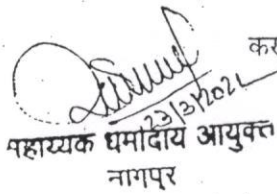 कर
23/3/2021
सहाय्यक धर्मादाय आयुक्त
नागपूर